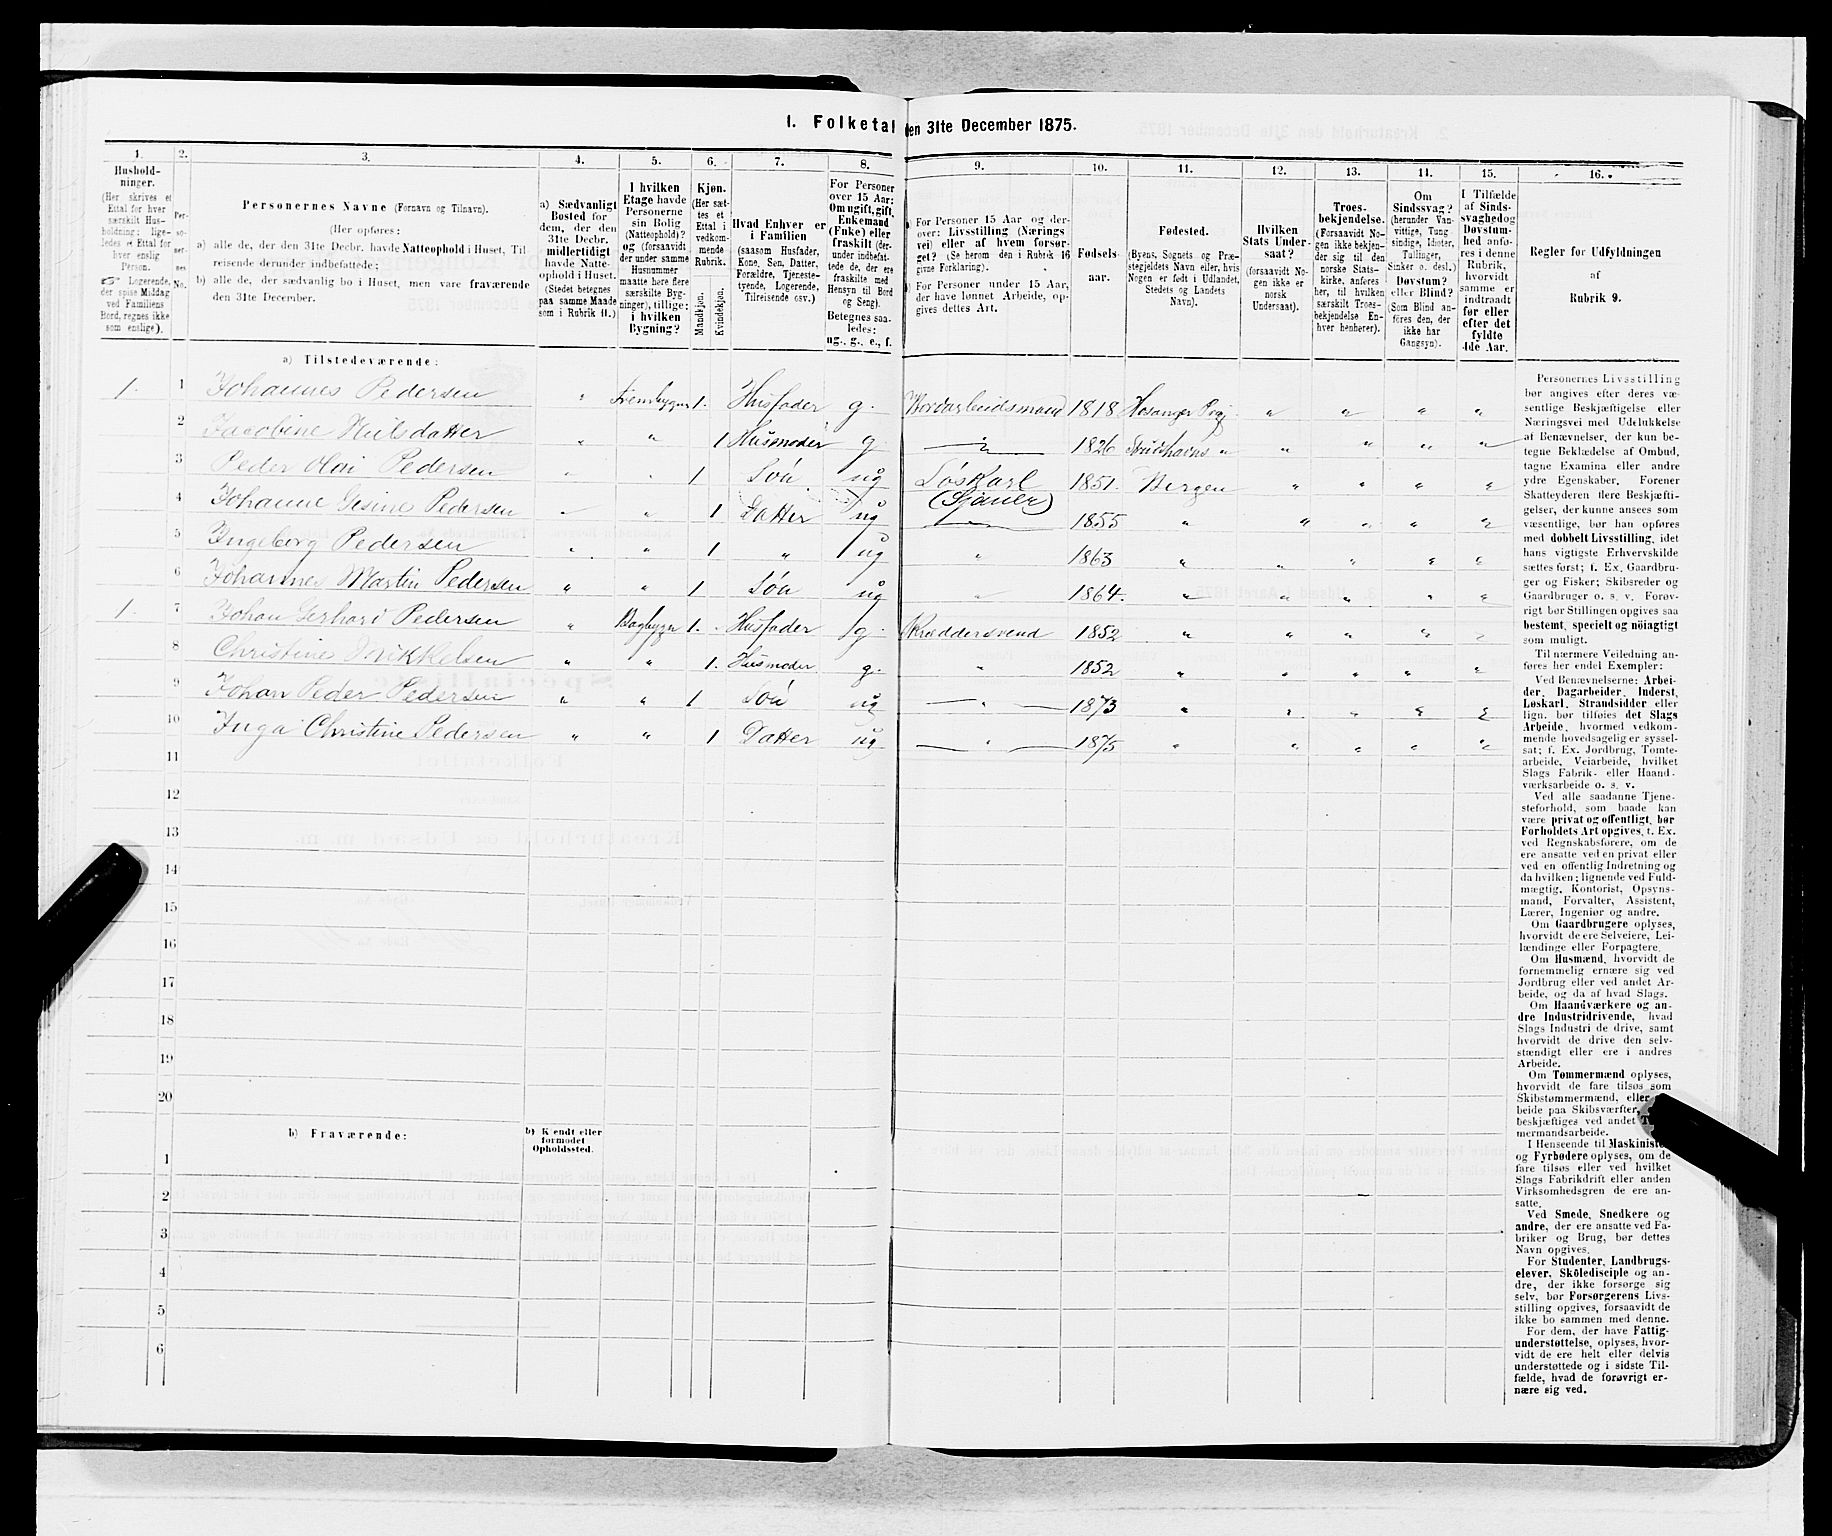 1. Folketal den 31te December 1875.
1.
2.
3.
4.
5.
6.
7.
8.
9.
10.
11.
12.
13.
14.
15.
16.
Hushold-
ninger.
(Her skrives et
Ettal for hver
særskilt Hus-
holdning; lige-
ledes et Ettal for
hver enslig
Person.
☞ Logerende,
der spise Middag
ved Familiens
Bord, regnes ikke
som enslige).
Per-
so-
ner-
nes
No.
Personernes Navne (Fornavn og Tilnavn).
(Her opføres:
a) alle de, der den 31te Decbr. havde Natteophold i Huset, Til
reisende derunder indbefattede;
b) alle de, der sædvanlig bo i Huset, men vare fraværende
den 31te December.
a) Sædvanligt
Bosted for
dem, der den
31te Decbr.
midlertidigt
havde Natte-
ophold i Huset.
(Stedet betegnes
paa samme Maade
som i Rubrik 11.)
I hvilken
Etage havde
Personerne
sin Bolig
(Natteophold)?
og (forsaavidt
der under samme
Husnummer
maatte høre flere
særskilte Byg-
ninger), tillige:
i hvilken
Bygning?
Kjøn.
(Her sæt-
tes et
Ettal i
vedkom-
mende
Rubrik.
Mandkjøn.
Kvindekjøn.
Hvad Enhver er
i Familien
(saasom Husfader,
Kone, Søn, Datter,
Forældre, Tjeneste-
tyende, Logerende,
Tilreisende osv.)
For Personer
over 15 Aar:
Om ugift, gift,
Enkemand
(Enke) eller
fraskilt (der-
under indbefat-
tede de, der ere
fraskilte med
Hensyn til Bord
og Seng).
Betegnes saa-
ledes:
ug., g., e., f.
a) For Personer 15 Aar og der-
over: Livsstilling (Nærings
vei) eller af hvem forsør-
get? (Se herom den i Rubrik 16
givne Forklaring).
b) For Personer under 15 Aar,
der have lønnet Arbeide, op-
gives dettes Art.
Fødsels-
aar.
Fødested.
(Byens, Sognets og Præ-
stegjeldets Navn eller, hvis
Nogen er født i Udlandet,
Stedets og Landets
Navn).
Hvilken
Stats Under-
saat?
(forsaavidt No-
gen ikke er
norsk
Undersaat).
Troes-
bekjendelse.
(Forsaavidt No-
gen ikke bekjen-
der sig til den
norske Stats-
kirke, anføres
her, til hvilken
særskilt Troes-
bekjendelse En-
hver henhører).
Om
Sindssvag?
(herunder Van-
vittige, Tung
sindige, Idioter,
Tullinger,
Sinker o. desl.)
Døvstum?
eller Blind?
(Som Blind an-
føres den, der
ikke har
Gangsyn).
I Tilfælde
af Sinds-
svaghed og
Døvstum-
hed anfø-
res i denne
Rubrik,
hvorvidt
samme er
indtraadt
før eller
efter det
fyldte
4de Aar.
Regler for Udfyldningen
af
Rubrik 9.
a) Tilstedeværende:
1. 1 Johannes Pedersen " 1. Husfader g. 1818 " " " "
2 Jacobine " " 1 Husmoder g. " 1826 " " " "
3 Peder Olai Pedersen " " 1 Søn ug Løskarl 1851. Bergen " " " "
4 Johanne Gesine Pedersen " " 1 Datter ug 1855 " " " " "
5 Ingeborg Pedersen " " 1 " ug " 1863 " " " " "
6 Johannes Martin Pedersen " " 1 Søn ug " 1864. " " " " "
1. 7 Johan Gerhard Pedersen " Bagbygn 1. Husfader g. Skræddersvend 1852 " " " " "
8 Christine Mikkelsen " " 1. Husmoder g. " 1852 " " " " "
9 Johan Peder Pedersen " " 1 Søn ug " 1873 " " " " "
10 Inga Christine Pedersen " " 1 Datter ug " 1875 " " " " "
11
12
13
14
15
16
17
18
19
20
b) Fraværende:
b) Kjendt eller
formodet
Opholdssted.
1
2
3
4
5
6
Personernes Livsstilling
bør angives efter deres væ-
sentlige Beskjæftigelse eller
Næringsvei med Udelukkelse
af Benævnelser, der kun be-
tegne Beklædelse af Ombud,
tagne Examina eller andre
ydre Egenskaber. Forener
Skatteyderen flere Beskjæfti-
gelser, der kunne ansees som
væsentlige, bør han opføres
med dobbelt Livsstilling, idet
hans vigtigste Erhvervskilde
sættes først; f. Ex. Gaardbru-
ger og Fisker; Skibsreder og
Gaardbruger o. s. v. Forøv-
rigt bør Stillingen opgives saa
bestemt, specielt og nöiagtigt
som muligt.
Til nærmere Veiledning an-
føres her endel Exempler:
Ved Benævnelserne: Arbei-
der, Dagarbeider, Inderst,
Løskarl, Strandsidder eller
lign. bør tilføies det Slags
Arbeide, hvormed vedkom-
mende hovedsagelig er syssel-
sat; f. Ex. Jordbrug, Tomte-
arbeide, Veiarbeide, hvilket
Slags Fabrik- eller Haand-
værksarbeide o. s. v.
Ved alle saadanne Tjene-
steforhold, som baade kan
være privat og offentligt, bør
Forholdets Art opgives, t. Ex.
ved Regnskabsførere, om de
ere ansatte ved en privat eller
ved en offentlig Indretning og
da hvilken; lignende ved Fuld-
mægtig, Kontorist, Opsyns-
mand, Forvalter, Assistent,
Lærer, Ingeniør og andre.
Om Gaardbrugere oplyses,
hvorvidt de ere Selveiere, Lei-
lændinge eller Forpagtere.
Om Husmænd, hvorvidt de
fornemmelig ernære sig ved
Jordbrug eller ved andet Ar-
beide, og da af hvad Slags.
Om Haandværkere og an-
dre Industridrivende, hvad
Slags Industri de drive, samt
hvorvidt de drive den selv-
stændigt eller ere i andres
Arbeide.
Om Tømmermænd oplyses,
hvorvidt de fare tilsøs som
Skibstømmermænd, eller
beide paa Skibsværfter,
beskjæftiges ved andet
mermandsarbeide.
I Henseende til Maskinister
og Fyrbødere oplyses, om de
fare tilsøs eller ved hvilket
Slags Fabrikdrift eller anden
Virksomhedsgren de ere an-
satte.
Ved Smede, Snedkere og
andre, der ere ansatte ved Fa-
briker og Brug, bør dettes
Navn opgives.
For Studenter, Landbrugs-
elever, Skôledisciple og an-
dre, der ikke forsørge sig
selv, bør Forsørgerens Livs-
stilling opgives, forsaavidt de
ikke bo sammen med denne.
For dem, der have Fattig-
understøttelse, oplyses, hvor-
vidt de ere helt eller delvis
understøttede og i sidste Til-
fælde, hvad de forøvrigt er-
nære sig ved.